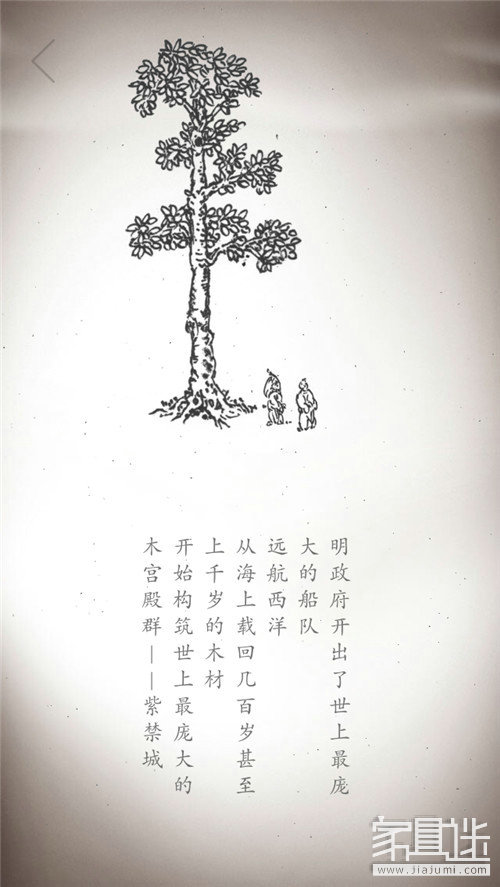 明政府开出了世上最庞
大的船队
远航西洋
从海上载回几百岁甚至
上千岁的木材
开始构筑世上最庞大的
木宫殿群——紫禁城
家具迷
www.jiajumi.com